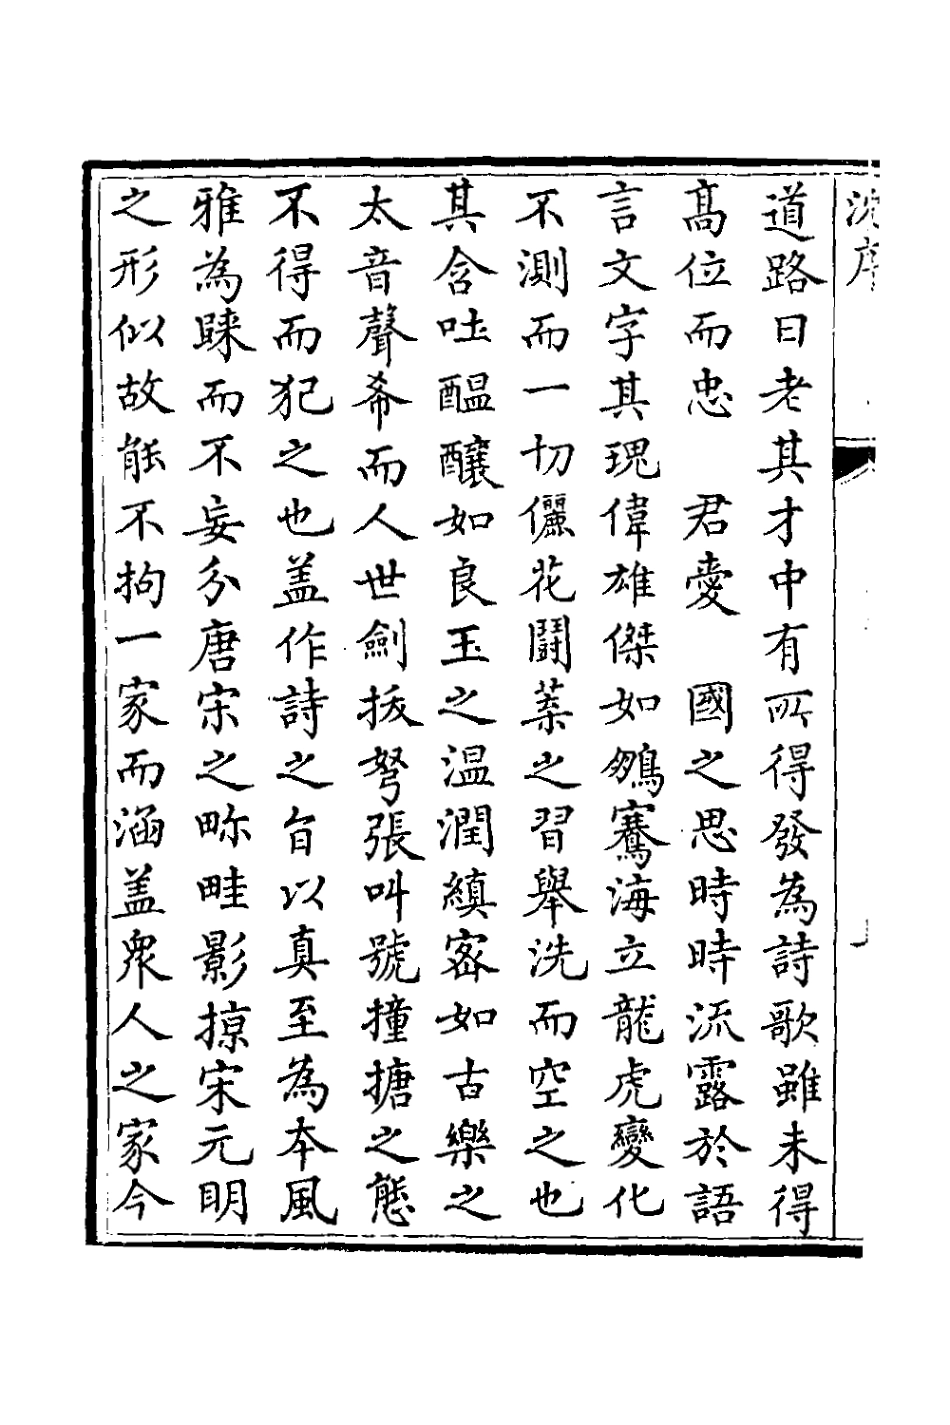 沈序
道路曰老其才中有所得發為詩歌雖未得
髙位而忠　君愛　國之思時時流露於語
言文字其瑰偉雄傑如鵬騫海立龍虎變化
不測而一切儷花鬪葉之習舉洗而空之也
其含吐醖釀如良玉之温潤縝宻如古樂之
太音聲希而人世劍拔弩張叫號撞搪之態
不得而犯之也盖作詩之旨以真至為本風
雅為而不妄分唐宋之畛畦影掠宋元明
之形似故能不拘一家而涵盖衆人之家今